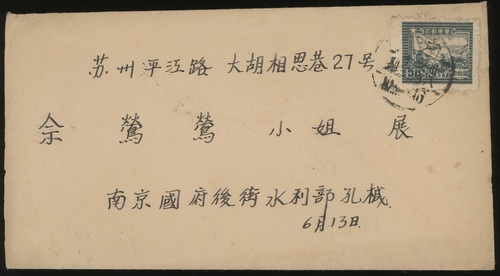 苏州平江路 大胡相思巷27号
佘鶯鶯 小姐 展
南京國府後街水利部孔械
6月13日